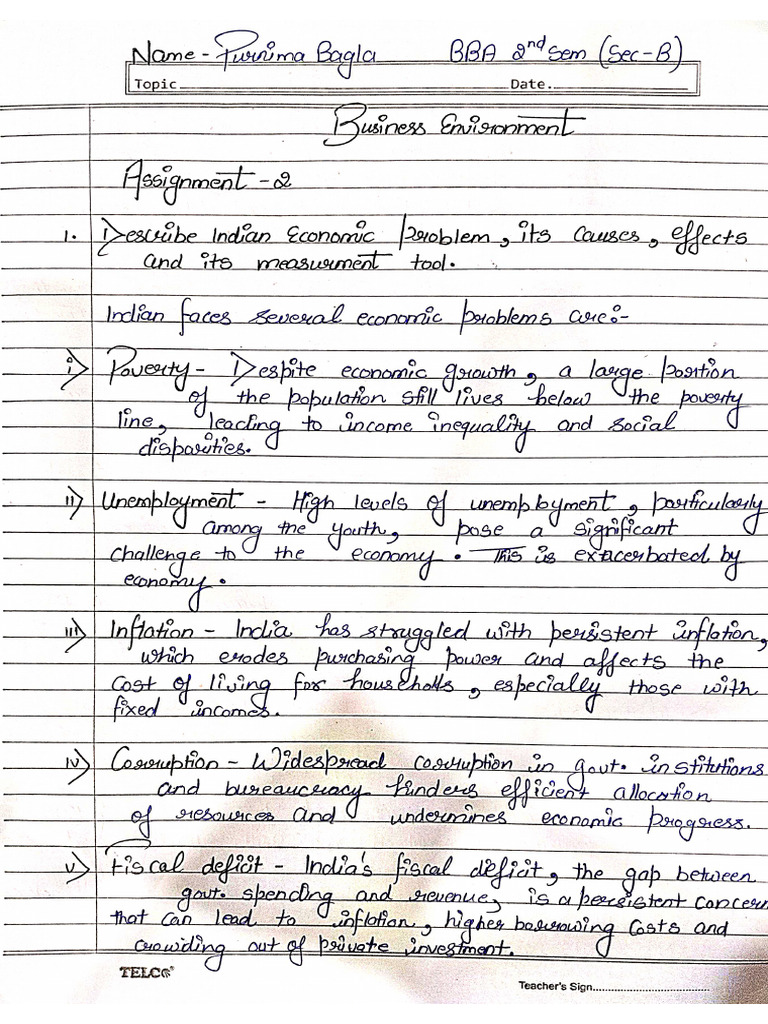 Name - Purnima Bagla BBA 2nd Sem (Sec-B)
Topic Date.
Business Environment
Assignment - 2
1. Describe Indian Economic Problem, its causes, effects
and its measurment tool.
Indian faces several economic problems are:-
i) Poverty - Despite economic growth, a large portion
of the population still lives below the poverty
line, leading to income inequality and social
disparities.
ii) Unemployment - High levels of unemployment, particularly
among the youth, pose a significant
challenge to the economy. This is exacerbated by
economy.
iii) Inflation - India has struggled with persistent inflation,
which erodes purchasing power and affects the
cost of living for households, especially those with
fixed incomes.
iv) Corruption - Widespread corruption in govt. institutions
and bureaucracy hinders efficient allocation
of resources and undermines economic progress.
v) Fiscal deficit - India's fiscal deficit, the gap between
govt. spending and revenue, is a persistent concern
that can lead to inflation, higher borrowing costs and
crowding out of private investment.
TELCO
Teacher's Sign